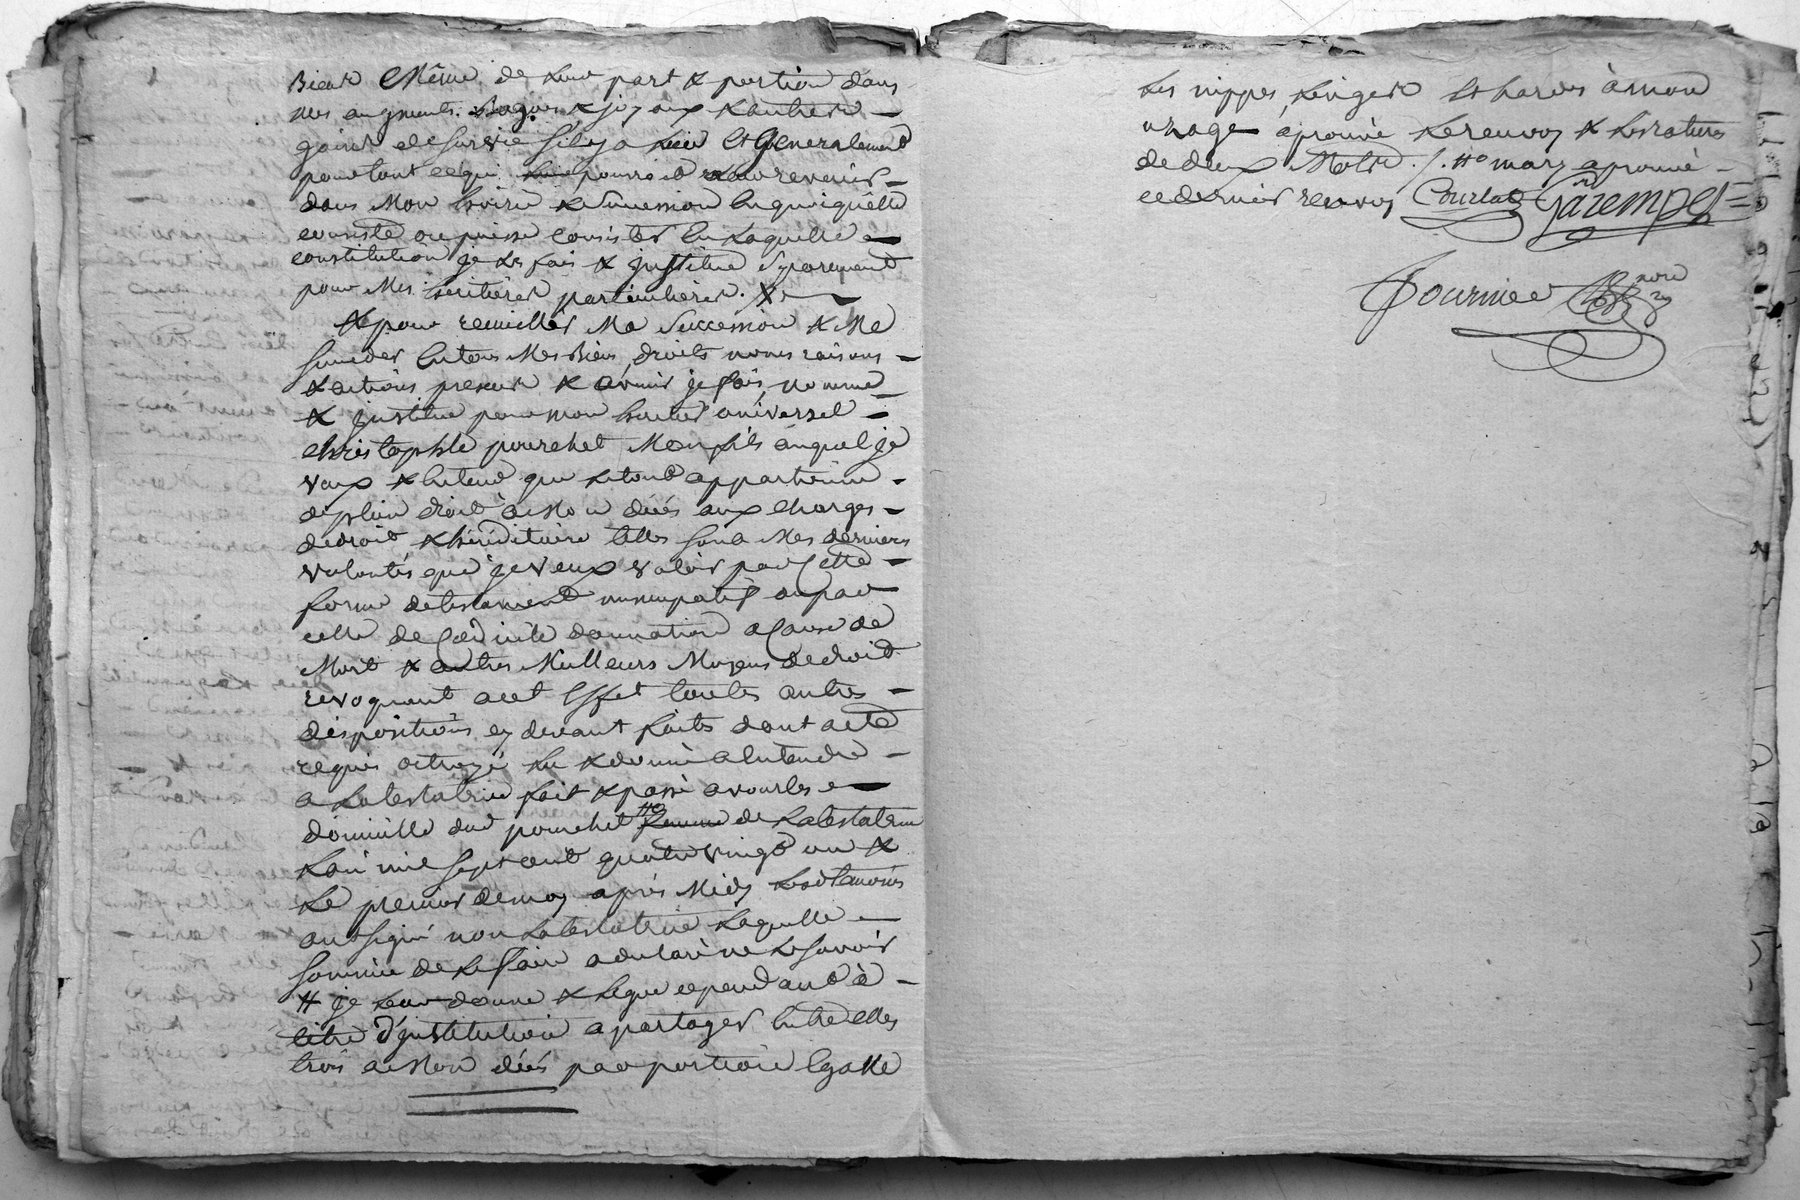 Biens Même de leur part & portion dans
mes augments. Bagues & joyaux & autres
gains de survie sil y a lieu Et Generalement
pour tout ce qui pourroit leur revenir
dans Mon hoirie & Succession En quoi quelle
consiste ou puisse consister En laquelle
constitution je les fais & justitue Separement
pour Mes heritieres particulieres. &
& pour recueillir Ma Succession & Me
succeder En tous Mes Biens droits noms raisons
& actions present & avenir je fais, nomme
& justitue pour mon heritier universel
christophle pourchet Mon fils auquel je
veux & Entend que le tout appartienne
de plein droit à Mon décés aux charges
de droit & hereditaire telles sont Mes dernieres
volontés que je veux valoir par Cette
forme de testament nuncupatif ou par
celle de Codicille donnation a Cause de
Mort & autres Meilleurs Moyens de droit
revoquant a cet Effet toutes autres
dispositions cy devant faites dont acte
requis octroyé lu & donné a Entendre
a la testatrice fait & passé a vourles
domicille dud pourchet #o femme de la testatrice
Lan mil sept cent quatre vingt un &
Le premier de may après Midy Les d temoins
ont signé non la testatrice Laquelle
sommée de Le faire a declaré ne Le Savoir
# je leur donne & legue cependant à
titre d'justitution a partager Entre elles
trois a Mon décés par portion Egalle
Les nippes, linges & hardes à mon
usage aprouvé le renvoy & Les ratures
de deux Mots. /. #o mary aprouvé
ce dernier renvoy Courtat Garempel
Fournier nore